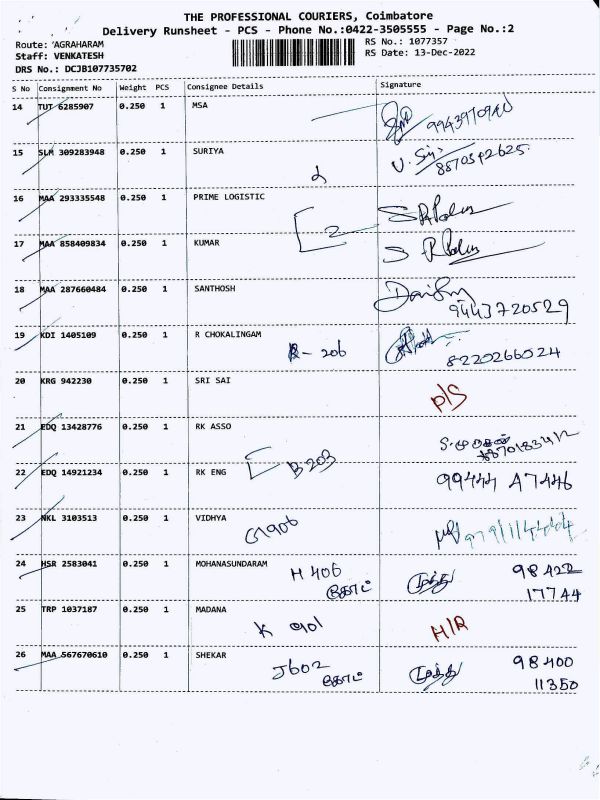 THE PROFESSIONAL COURIERS, Coimbatore
Delivery Runsheet - PCS - Phone No.:0422-3505555 - Page No.:2
Route: AGRAHARAM
RS No.: 1077357
Staff: VENKATESH
RS Date: 13-Dec-2022
DRS No.: DCJB107735702
S No Consignment No Weight PCS Consignee Details Signature
14 TUT 6285907 0.250 1 MSA
15 SLM 309283948 0.250 1 SURIYA
8870542625
16 MAA 293335548 0.250 1 PRIME LOGISTIC
2
17 MAA 858409834 0.250 1 KUMAR
18 MAA 287660484 0.250 1 SANTHOSH
9443720529
19 KDI 1405109 0.250 1 R CHOKALINGAM
R- 206 8220266024
20 KRG 942230 0.250 1 SRI SAI
P/S
21 EDQ 13428776 0.250 1 RK ASSO
22 EDQ 14921234 0.250 1 RK ENG
B 203 99444 47446
23 NKL 3103513 0.250 1 VIDHYA
G1906
24 HSR 2583041 0.250 1 MOHANASUNDARAM
H 406 முத்து 98422
17744
25 TRP 1037187 0.250 1 MADANA
K 901 H/R
26 MAA 567670610 0.250 1 SHEKAR
J602 முத்து 98400
11350